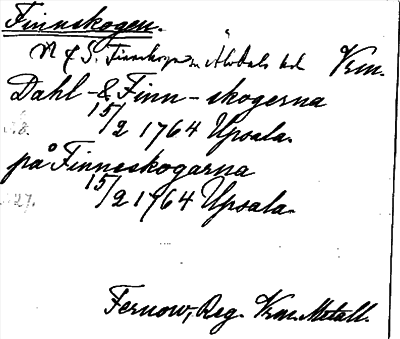 Finnskogen.
N & S. Finnskoga i Älvdals hd Vrm.
Dahl- & Finn-skogerna
15/2 1764 Upsala.
på Finneskogarna
15/2 1764 Upsala.
Fernow, Reg. Vrm. Metall.